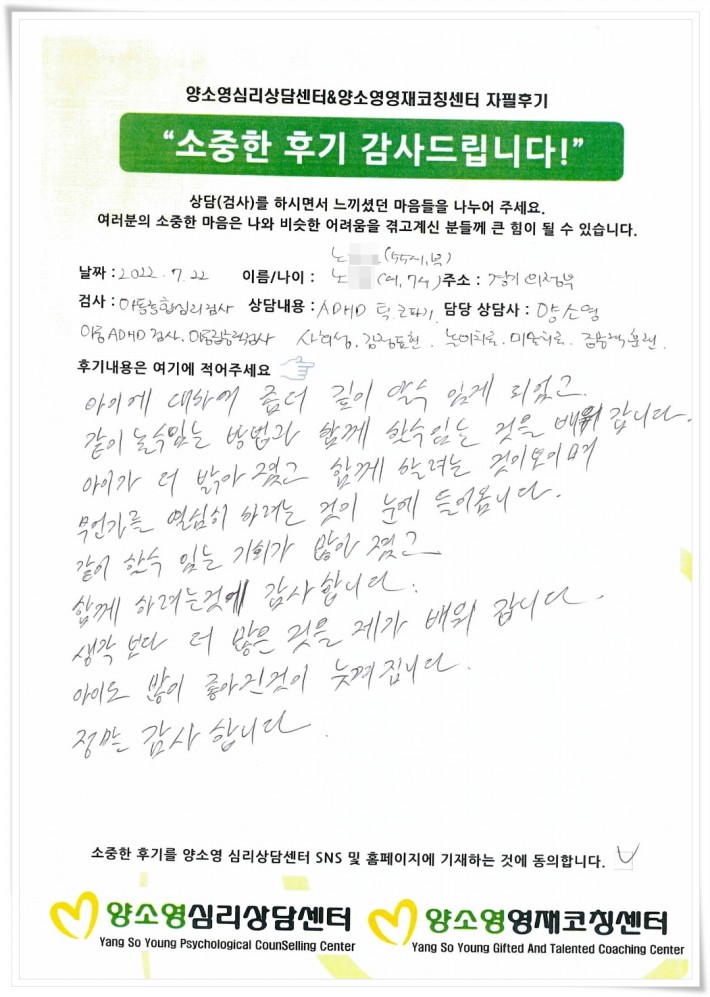 양소영심리상담센터&양소영영재코칭센터 자필후기
“소중한 후기 감사드립니다!”
상담(검사)를 하시면서 느끼셨던 마음들을 나누어 주세요.
여러분의 소중한 마음은 나와 비슷한 어려움을 겪고계신 분들께 큰 힘이 될 수 있습니다.
노 (55세, 부)
날짜 : 2022. 7. 22 이름/나이 : 노 (여, 7세) 주소 : 경기 의정부
검사 : 아동종합심리검사 상담내용 : ADHD 틱. 코파기. 담당 상담사 : 양소영
아동ADHD 검사. 사회성. 감정표현. 놀이치료. 미술치료. 집중력 훈련.
후기내용은 여기에 적어주세요
아이에 대하여 좀더 깊이 알수 있게 되었고
같이 놀수있는 방법과 함께 할수있는 것을 배워 갑니다.
아이가 더 밝아 졌고 함께 할려는 것이보이며
무언가를 열심히 하려는 것이 눈에 들어옵니다.
같이 할수 있는 기회가 많아 졌고
함께 하려는것에 감사합니다.
생각 보다 더 많은 것을 제가 배워 갑니다.
아이도 많이 좋아진것이 늦껴집니다.
정말 감사 합니다.
소중한 후기를 양소영 심리상담센터 SNS 및 홈페이지에 기재하는 것에 동의합니다. V
양소영심리상담센터 양소영영재코칭센터
Yang So Young Psychological CounSelling Center Yang So Young Gifted And Talented Coaching Center